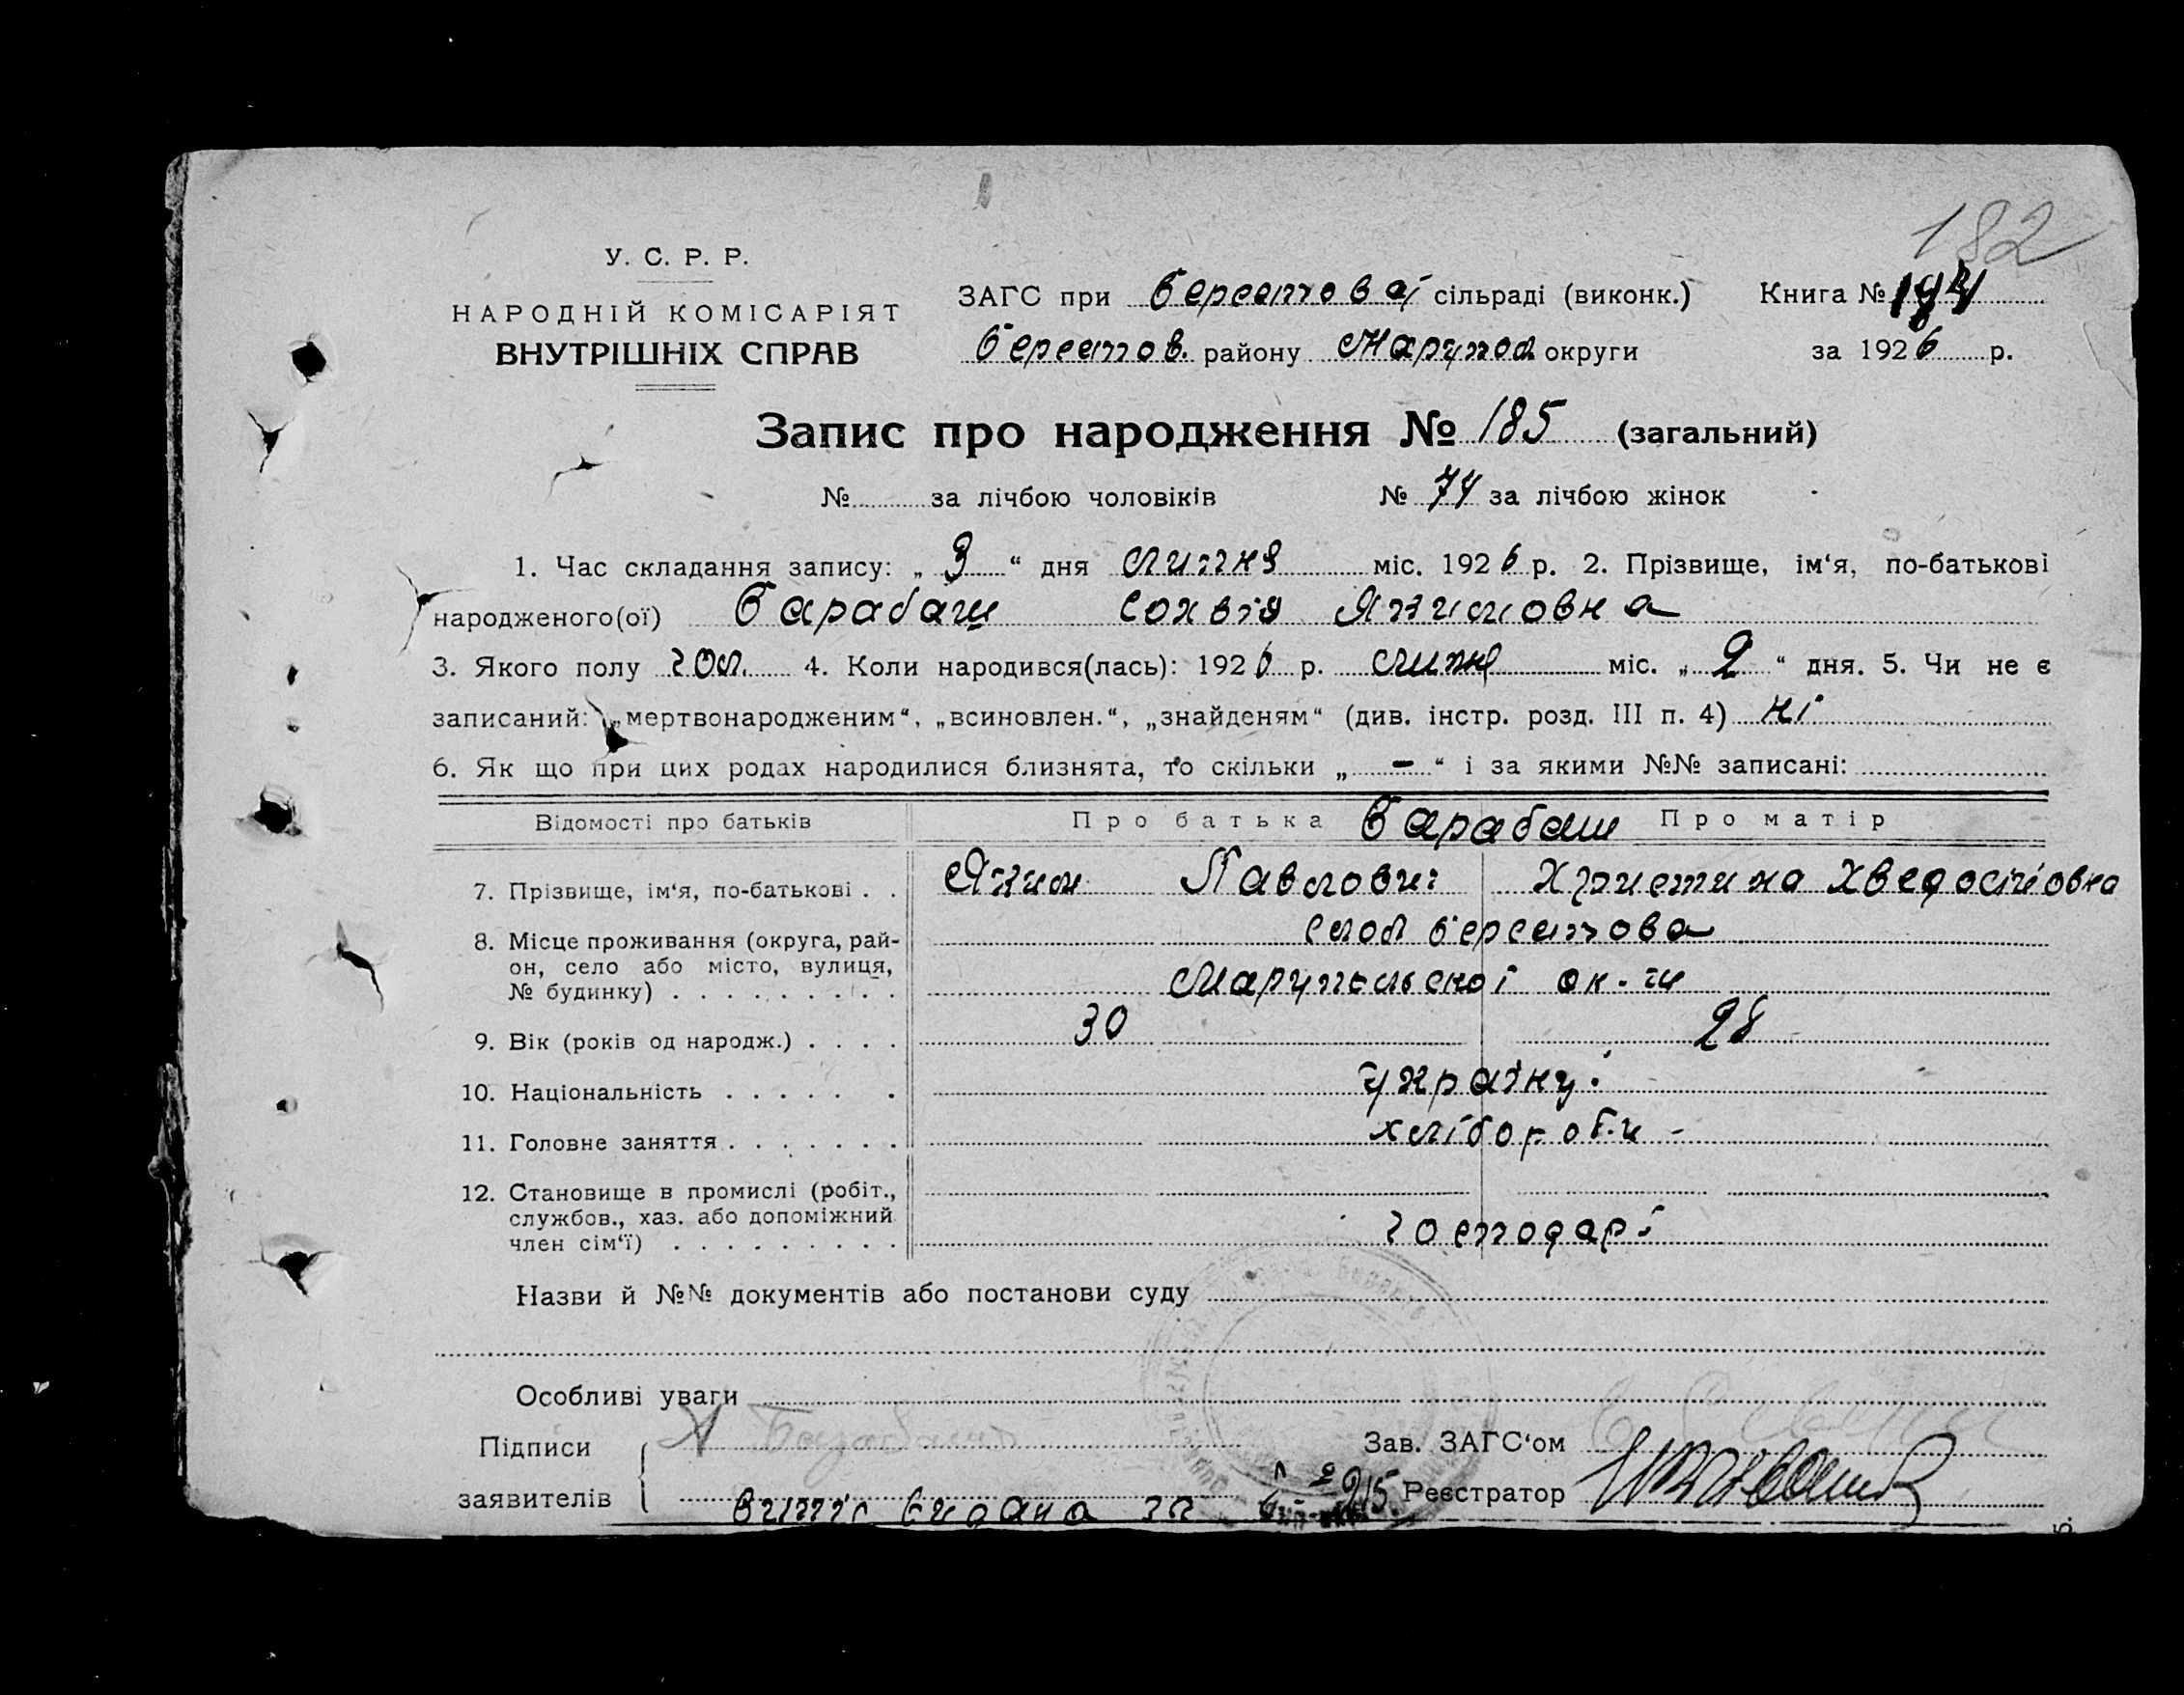 182
У. С. Р. Р.
НАРОДНІЙ КОМІСАРІЯТ
ВНУТРІШНІХ СПРАВ
ЗАГС при Берестової сільраді (виконк.) Книга №
Берестов. району Маріупол округи за 1926 р.
Запис про народження № 185 (загальний)
№ за лічбою чоловіків № 74 за лічбою жінок
1. Час складання запису: „ 3 “ дня липня міс. 1926 р. 2. Прізвище, ім‘я, по-батькові
народженого(ої) Барабаш Сохвія Якимовна
3. Якого полу 4. Коли народився(лась): 1926 р. липня міс. „ 2 “ дня. 5. Чи не є
записаний: „мертвонародженим“, „всиновлен.“, „знайденям“ (див. інстр. розд. III п. 4) ні
6. Як що при цих родах народилися близнята, то скільки „ – “ і за якими №№ записані:
Відомості про батьків Про батька Барабаш Про матір
7. Прізвище, ім‘я, по-батькові . . Яким Павлович Христина Хведосіївовна
8. Місце проживання (округа, рай-
он, село або місто, вулиця,
№ будинку) . . . . . . . . . слоб Берестова
Маріупольської ок-ги
9. Вік (років од народж.) . . . . 30 28
10. Національність . . . . . . україн.
11. Головне заняття . . . . . . . хлібороби -
12. Становище в промислі (робіт.,
службов., хаз. або допоміжний
член сім‘ї) . . . . . . . . . господарі
Назви й №№ документів або постанови суду
Особливі уваги
Підписи
заявителів
Я Барабаш
Зав. ЗАГС‘ом
Реєстратор
за № 215